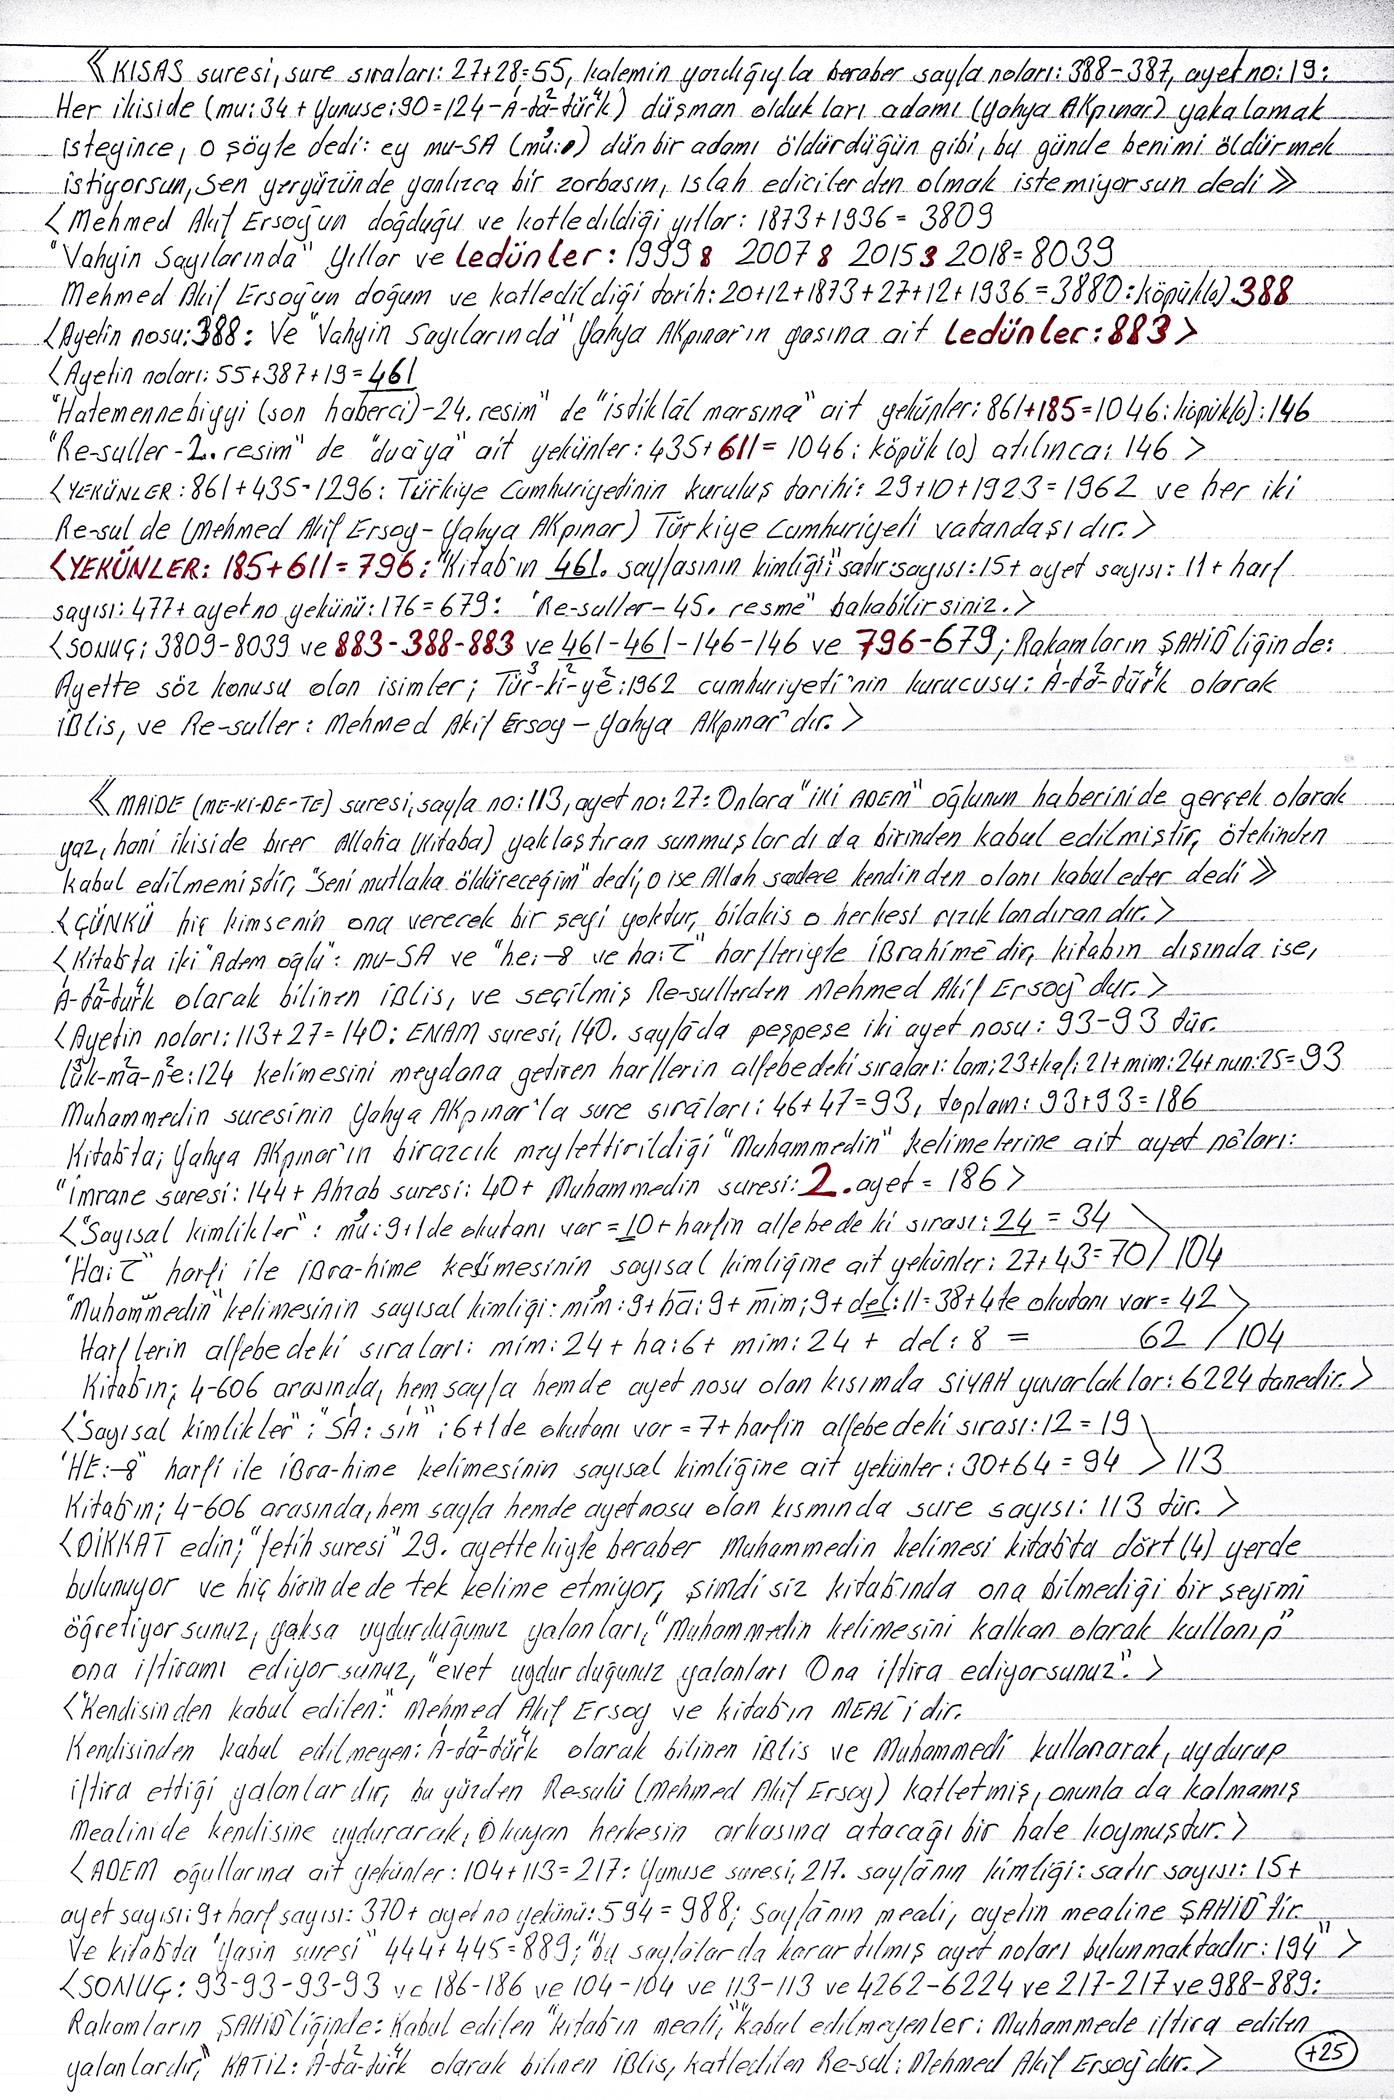 《KISAS suresi, sure sıraları: 27+28=55, kalemin yazdığıyla beraber sayfa noları: 388-387, ayet no: 19:
Her ikiside (mu: 34 + Yunuse: 90=124-A-ta²-tür⁴k) düşman oldukları adamı (Yahya AKpınar) yakalamak
isteyince, o şöyle dedi: ey mu-SA (mu: 9) dün bir adamı öldürdüğün gibi, bu günde benimi öldürmek
istiyorsun, sen yeryüzünde yanlızca bir zorbasın, ıslah edicilerden olmak istemiyorsun dedi》
<Mehmed Akif Ersoy'un doğduğu ve katledildiği yıllar: 1873+1936= 3809
"Vahyin Sayılarında" Yıllar ve Ledünler: 1999 8 2007 8 2015 3 2018= 8039
Mehmed Akif Ersoy'un doğum ve katledildiği tarih: 20+12+1873+27+12+1936=3880: köpük(o) 388
<Ayetin nosu: 388: Ve "Vahyin Sayılarında" Yahya AKpınar'ın yaşına ait Ledünler: 883>
<Ayetin noları: 55+387+19=461
"Hatemennebiyyi (son haberci)-24. resim" de "istiklâl marşına" ait yekünler: 861+185=1046: köpük(o): 146
"Re-suller-2. resim" de "duaya" ait yekünler: 435+611= 1046: köpük(o) atılınca: 146 >
<YEKÜNLER: 861+435=1296: Türkiye Cumhuriyetinin kuruluş tarihi: 29+10+1923=1962 ve her iki
Re-sul de (Mehmed Akif Ersoy-Yahya AKpınar) Türkiye Cumhuriyeti vatandaşıdır.>
<YEKÜNLER: 185+611= 796: "Kitab'ın 461. sayfasının kimliği": satır sayısı: 15+ ayet sayısı: 11+ harf
sayısı: 477+ ayet no yekünü: 176=679: "Re-suller-45. resme" bakabilirsiniz.>
<SONUÇ: 3809-8039 ve 883-388-883 ve 461-461-146-146 ve 796-679; Rakamların ŞAHİD liğinde:
Ayette söz konusu olan isimler; Tür³-ki²-ye²: 1962 cumhuriyeti'nin kurucusu: A-ta²-tür⁴k olarak
iBlis, ve Re-suller: Mehmed Akif Ersoy - Yahya AKpınar'dır.>
《MAİDE (ME-Kİ-DE-TE) suresi, sayfa no: 113, ayet no: 27: Onlara "iki ADEM" oğlunun haberini de gerçek olarak
yaz, hani ikiside birer Allah'a (kitaba) yaklaştıran sunmuşlardı da birinden kabul edilmiştir, ötekinden
kabul edilmemiştir, "seni mutlaka öldüreceğim" dedi, o ise Allah sadece kendinden olanı kabul eder dedi》
<ÇÜNKÜ hiç kimsenin ona verecek bir şeyi yoktur, bilakis o herkesi rızıklandırandır.>
<Kitab'ta iki "Adem oğlu": mu-SA ve "he: -8 ve ha: T" harfleriyle iBrahime dir, kitabın dışında ise,
A-ta²-tur⁴k olarak bilinen iBlis, ve seçilmiş Re-sullerden Mehmed Akif Ersoy'dur.>
<Ayetin noları: 113+27=140: ENAM suresi, 140. sayfada peşpeşe iki ayet nosu: 93-93 tür.
lük³-ma²-ne²: 124 kelimesini meydana getiren harflerin alfebedeki sıraları: lam: 23+kaf: 21+mim: 24+nun: 25=93
Muhammedin suresinin Yahya AKpınar'la sure sıraları: 46+47=93, toplam: 93+93=186
Kitab'ta; Yahya AKpınar'ın birazcık meylettirildiği "Muhammedin" kelimelerine ait ayet noları:
"İmrane suresi: 144+ Ahzab suresi: 40+ Muhammedin suresi: 2. ayet = 186>
<"Sayısal kimlikler": mu: 9+1 de okutanı var =10+harfin alfebedeki sırası: 24 = 34
"Ha: T" harfi ile iBra-hime kelimesinin sayısal kimliğine ait yekünler: 27+43=70 > 104
"Muhammedin" kelimesinin sayısal kimliği: mim: 9+ha: 9+mim: 9+del: 11=38+4 te okutanı var= 42
Harflerin alfebedeki sıraları: mim: 24 + ha: 6+ mim: 24 + del: 8 = 62 > 104
Kitab'ın; 4-606 arasında, hem sayfa hemde ayet nosu olan kısımda SİYAH yuvarlaklar: 6224 tanedir.>
<"Sayısal kimlikler": "SA: sin": 6+1 de okutanı var =7+harfin alfebedeki sırası: 12 = 19
"HE: -8" harfi ile iBra-hime kelimesinin sayısal kimliğine ait yekünler: 30+64 = 94 > 113
Kitab'ın; 4-606 arasında, hem sayfa hemde ayet nosu olan kısmında sure sayısı: 113 tür. >
<DİKKAT edin; "fetih suresi" 29. ayettekiyle beraber Muhammedin kelimesi kitab'ta dört (4) yerde
bulunuyor ve hiç birinde de tek kelime etmiyor, şimdi siz kitab'ında ona bilmediği bir şeyimi
öğretiyorsunuz, yoksa uydurduğunuz yalanları, "Muhammedin kelimesini kalkan olarak kullanıp"
ona iftiramı ediyorsunuz, "evet uydurduğunuz yalanları Ona iftira ediyorsunuz". >
<"Kendisinden kabul edilen": Mehmed Akif Ersoy ve kitab'ın MEAL'i dir.
Kendisinden kabul edilmeyen: A-ta²-tür⁴k olarak bilinen iBlis ve Muhammedi kullanarak, uydurup
iftira ettiği yalanlardır, bu yüzden Re-sulü (Mehmed Akif Ersoy) katletmiş, onunla da kalmamış
Mealini de kendisine uydurarak, Okuyan herkesin arkasına atacağı bir hale koymuştur.>
<ADEM oğullarına ait yekünler: 104+113=217: Yunuse suresi, 217. sayfanın kimliği: satır sayısı: 15+
ayet sayısı: 9+ harf sayısı: 370+ ayet no yekünü: 594 = 988; Sayfanın meali, ayetin mealine ŞAHİD'tir.
Ve kitab'ta "Yasin suresi" 444+445=889; "bu sayfalarda karartılmış ayet noları bulunmaktadır: 194" >
<SONUÇ: 93-93-93-93 ve 186-186 ve 104-104 ve 113-113 ve 4262-6224 ve 217-217 ve 988-889:
Rakamların ŞAHİD'liğinde: Kabul edilen "kitab'ın meali", "kabul edilmeyenler: Muhammede iftira edilen
yalanlardır", KATİL: A-ta²-tür⁴k olarak bilinen iBlis, katledilen Re-sul: Mehmed Akif Ersoy'dur.>
+25